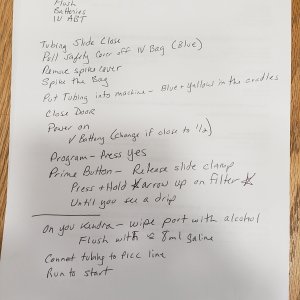 Flush
Batteries
IV ABT
Tubing Slide Close
Pull safety Cover off IV Bag (Blue)
Remove spike cover
Spike the Bag
Put Tubing into machine - Blue + Yellow in the cradles
Close Door
Power on
V Battery (change if close to 1/2)
Program - Press Yes
Prime Button - Release slide clamp
Press + Hold arrow up on filter
Until you see a drip
On you Kendra - wipe port with alcohol
Flush with 8 ml saline
Connet tubing to Picc line
Run to start